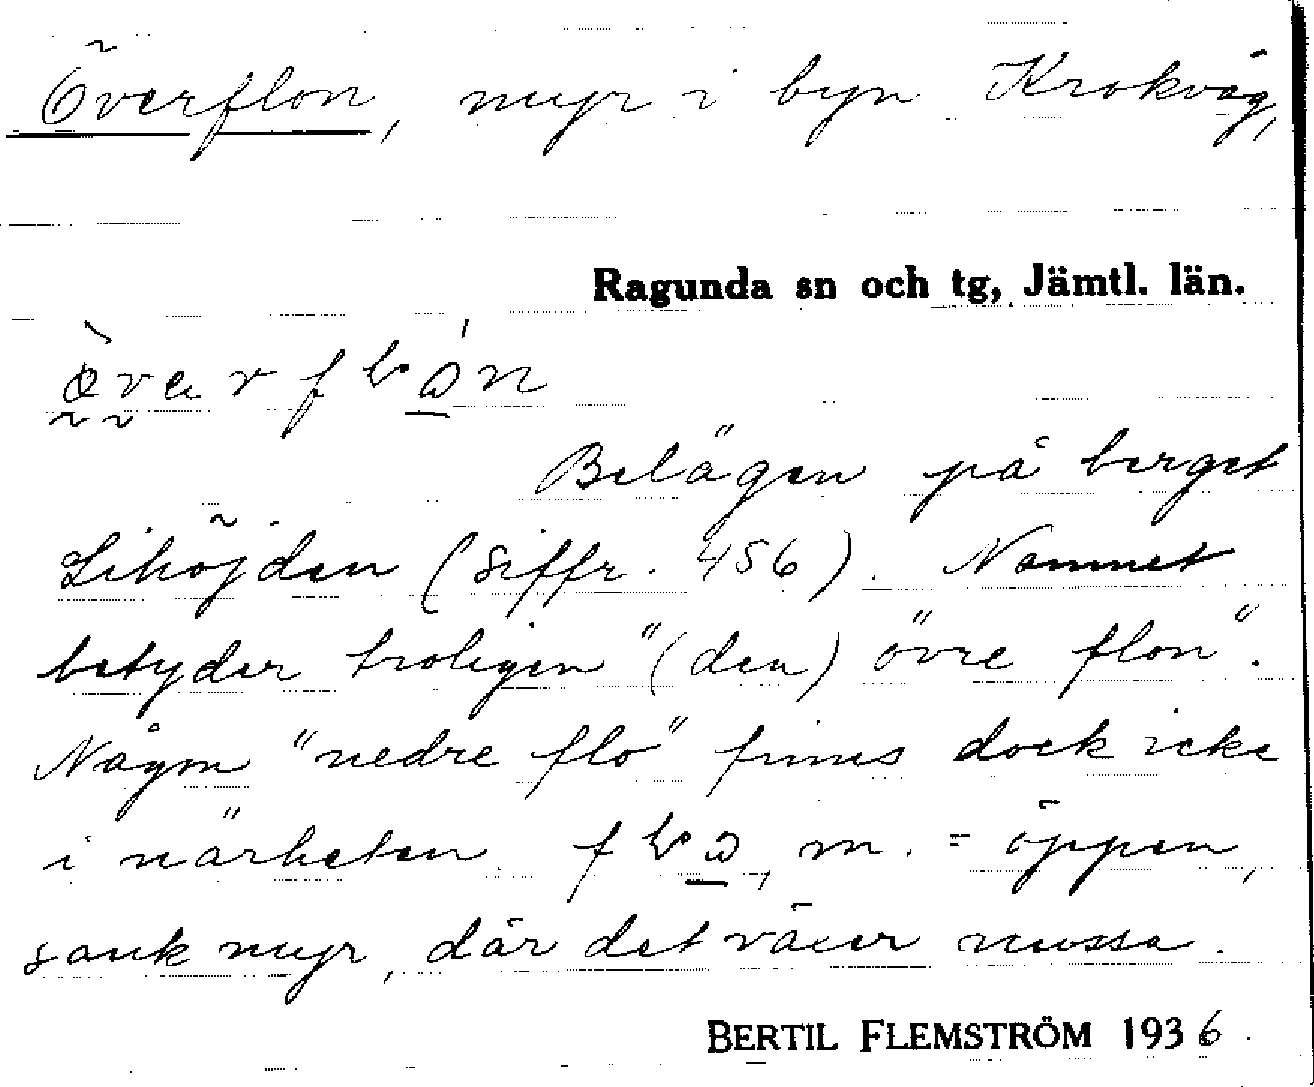 Överflon, myr i byn Krokvåg,
Ragunda sn och tg, Jämtl. län.
Belägen på berget
Lihöjden (siffr. 456). Namnet
betyder troligen "(den) övre flon".
Någon "nedre flo" finns dock icke
i närheten. m. = öppen,
sank myr, där det växer mossa.
BERTIL FLEMSTRÖM 1936.